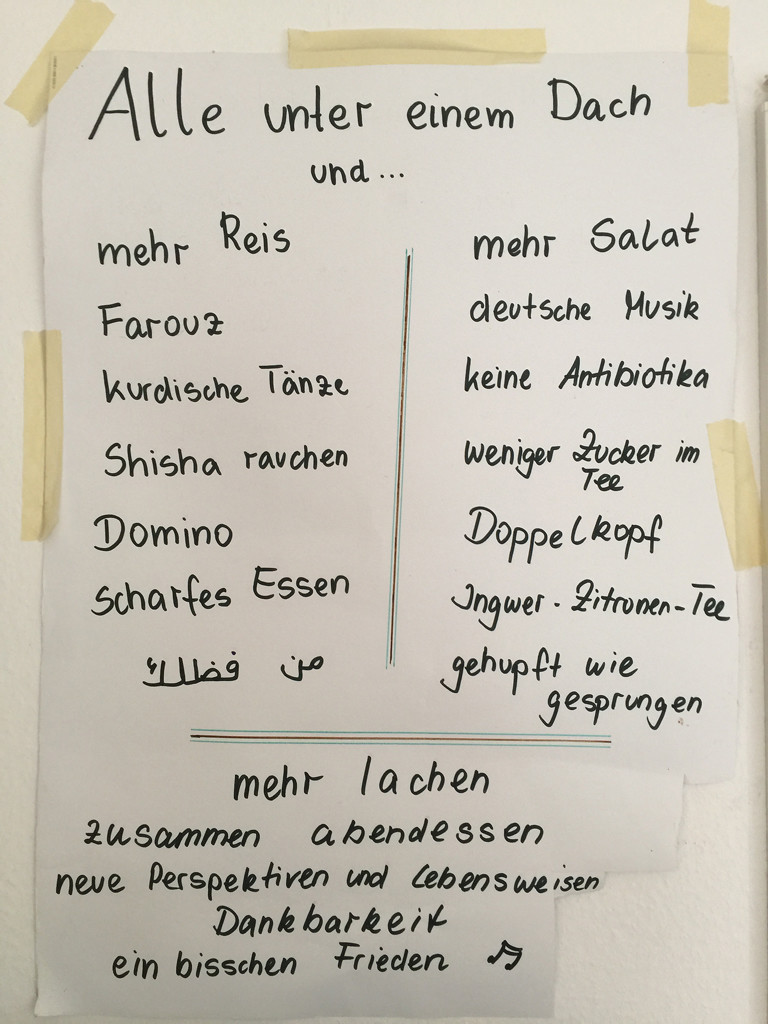 Alle unter einem Dach
und...
mehr Reis
Farouz
kurdische Tänze
Shisha rauchen
Domino
scharfes Essen
من فضلك
mehr Salat
deutsche Musik
keine Antibiotika
weniger Zucker im
Tee
Doppelkopf
Ingwer-Zitronen-Tee
gehupft wie
gesprungen
mehr lachen
zusammen abendessen
neue Perspektiven und Lebensweisen
Dankbarkeit
ein bisschen Frieden ♫